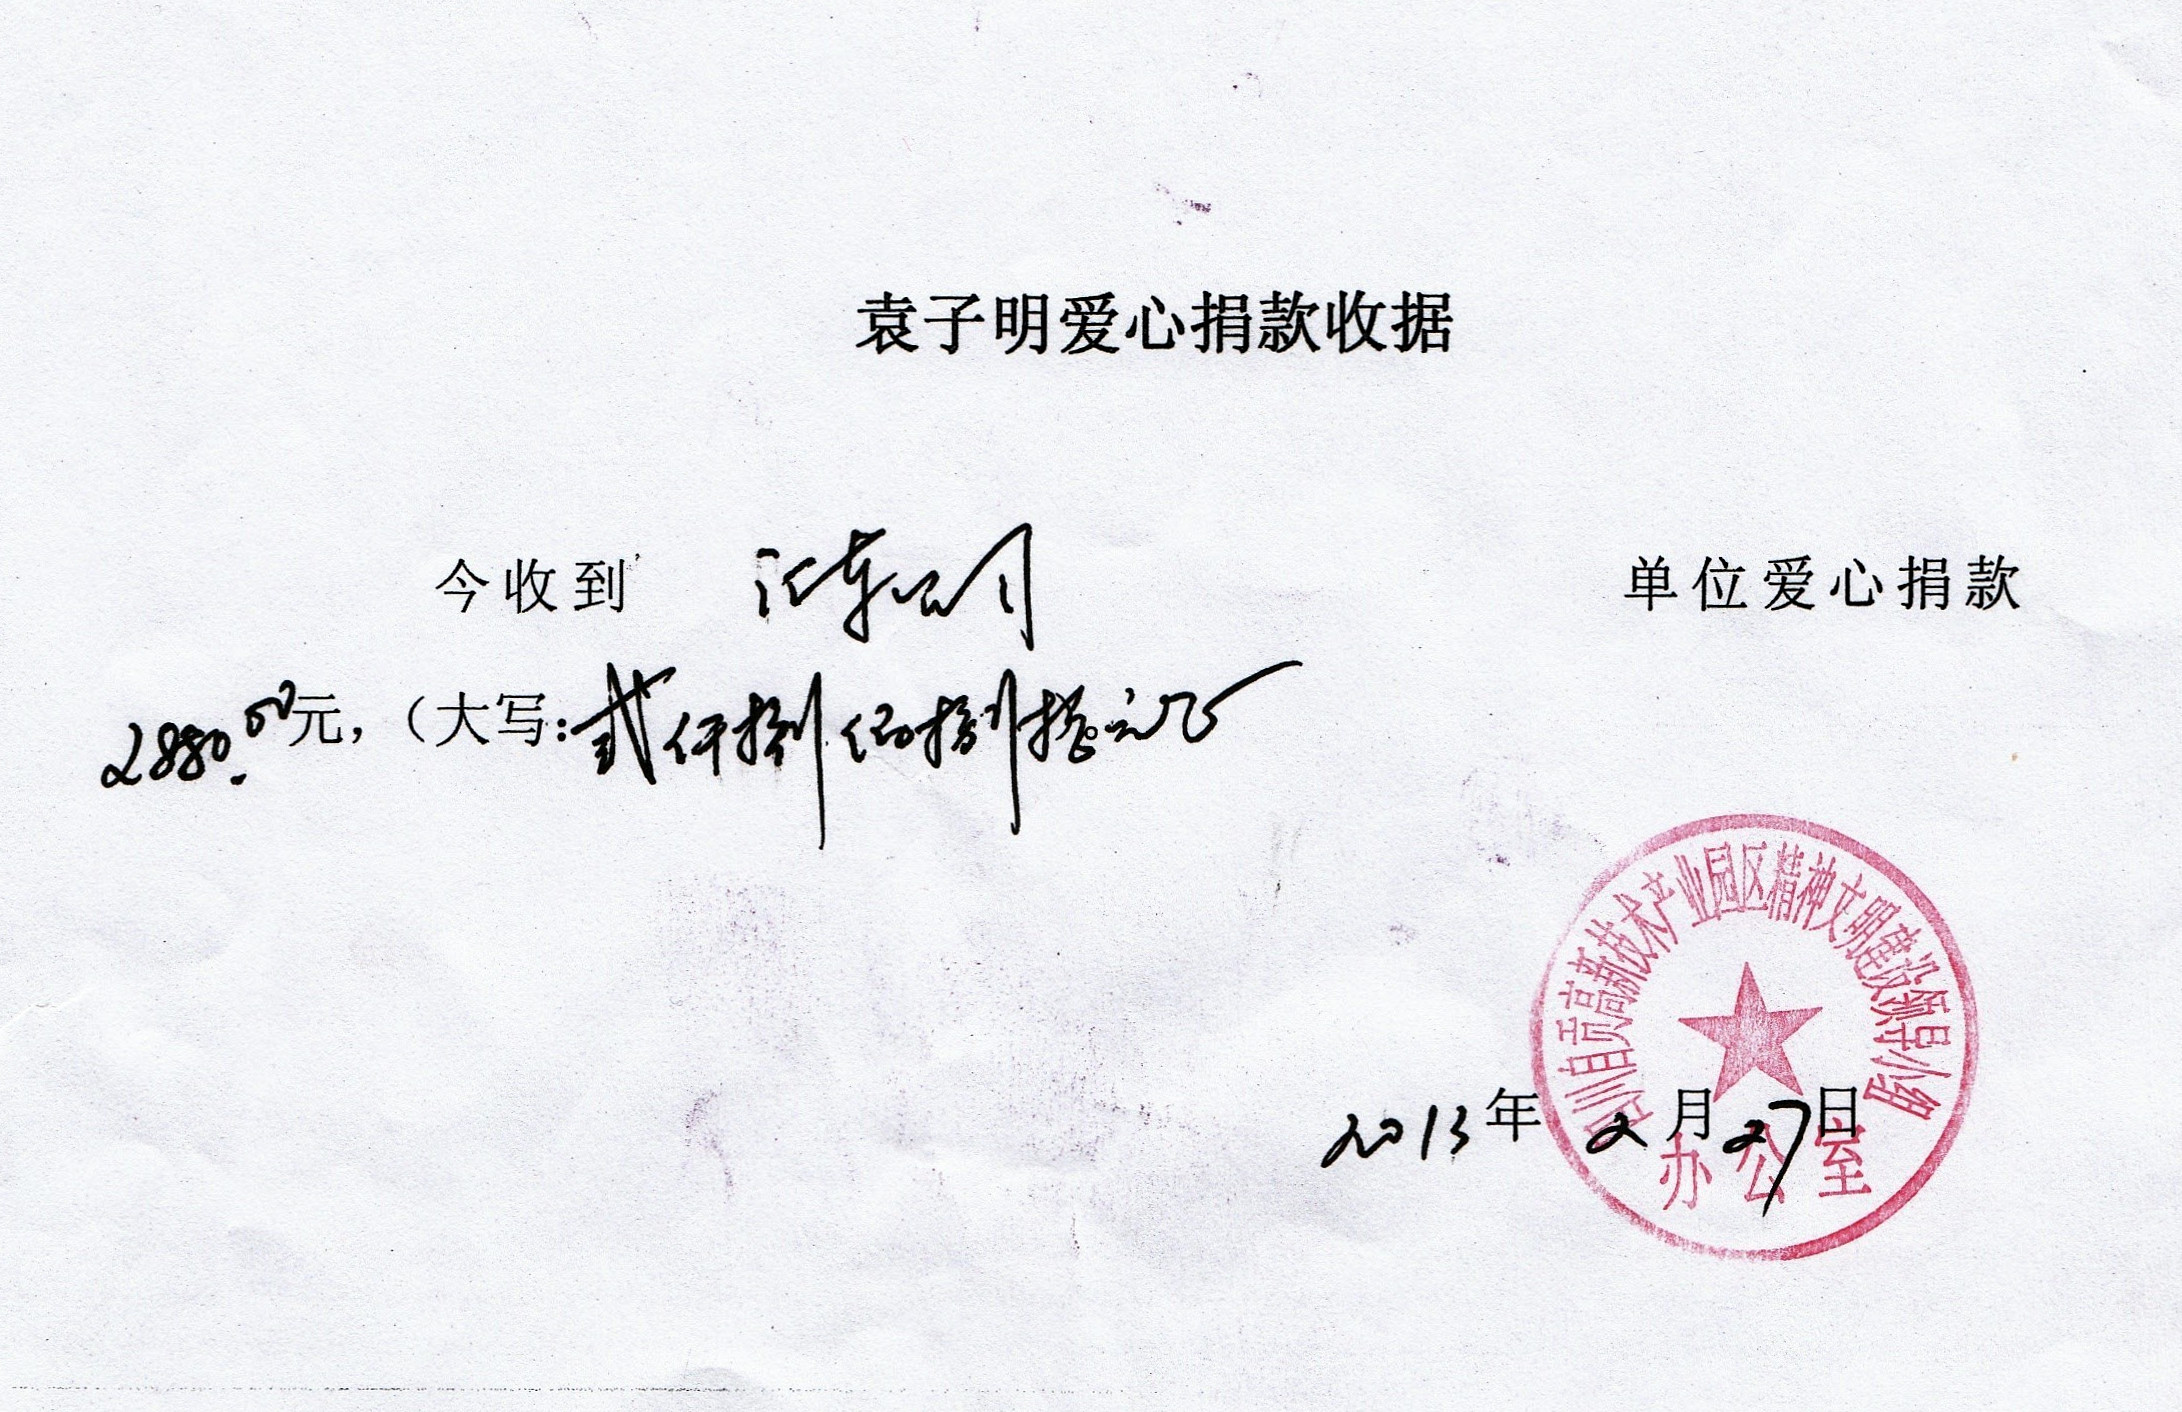 袁子明爱心捐款收据
今收到 汇东公司 单位爱心捐款
2880.00元，（大写：贰仟捌佰捌拾元正
四川自贡高新技术产业园区精神文明建设领导小组
2013年2月27日
办公室